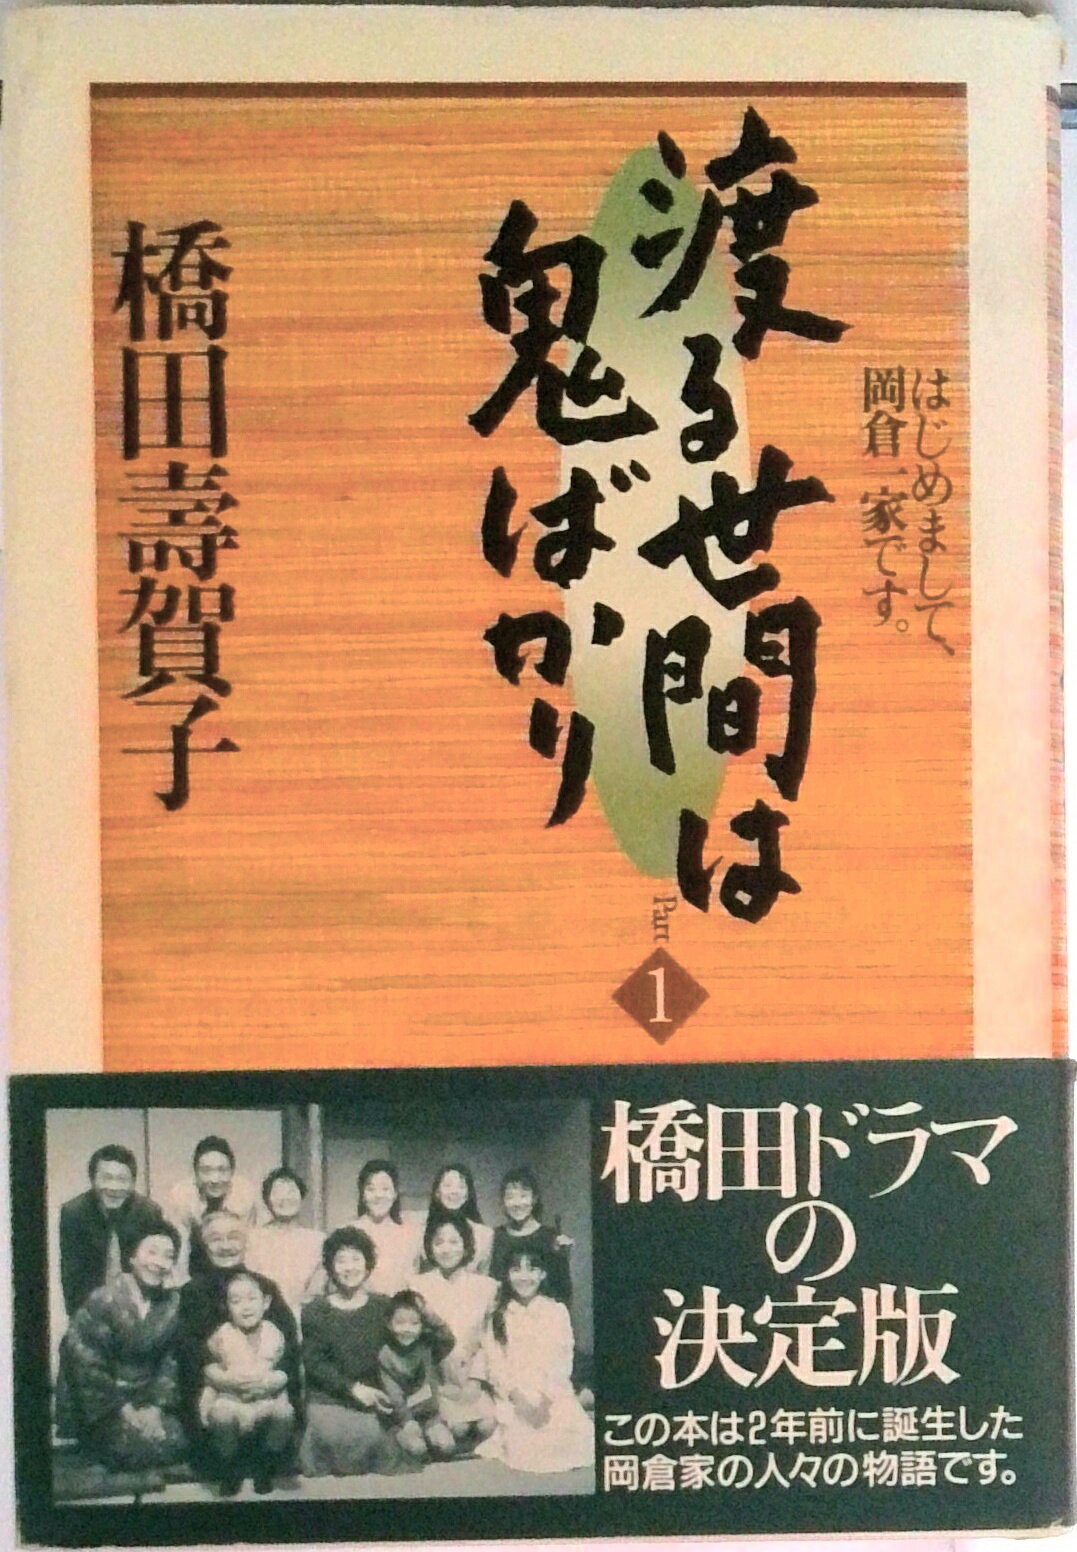 はじめまして、
岡倉一家です。
渡る世間は
鬼ばかり
Part
1
橋田壽賀子
橋田ドラマ
の
決定版
この本は2年前に誕生した
岡倉家の人々の物語です。